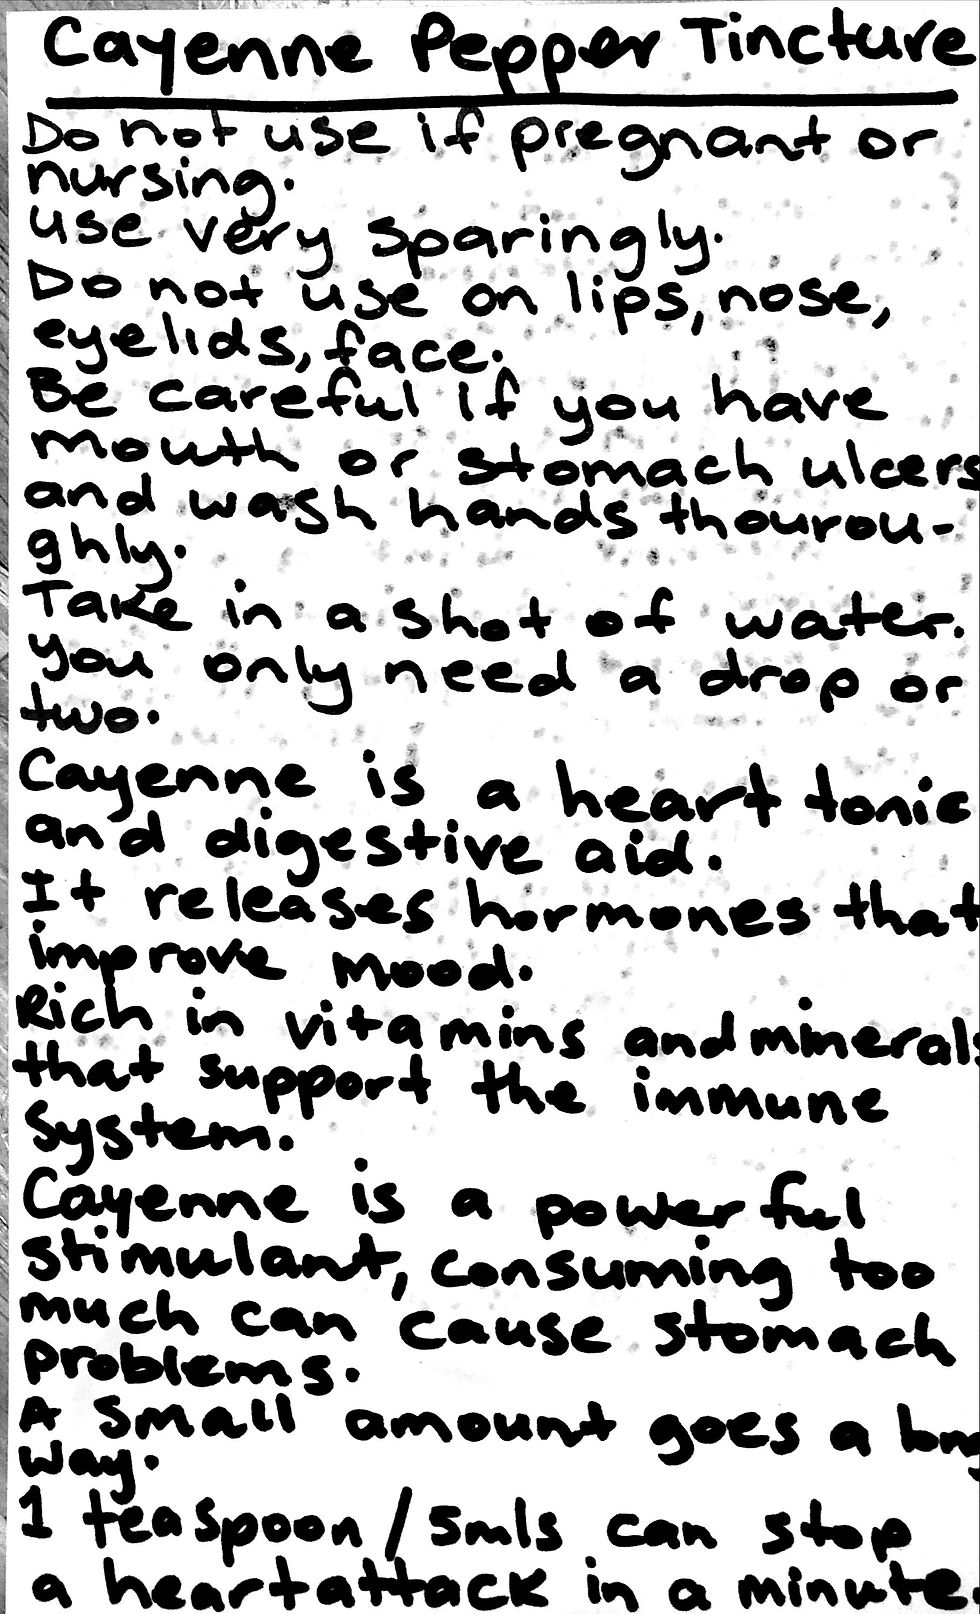 Cayenne Pepper Tincture
Do not use if pregnant or
nursing.
Use very sparingly.
Do not use on lips, nose,
eyelids, face.
Be careful if you have
mouth or stomach ulcers
and wash hands thourou-
ghly.
Take in a shot of water.
You only need a drop or
two.
Cayenne is a heart tonic
and digestive aid.
It releases hormones that
improve mood.
Rich in vitamins and minerals
that support the immune
system.
Cayenne is a powerful
stimulant, consuming too
much can cause stomach
problems.
A small amount goes a long
way.
1 teaspoon/5mls can stop
a heartattack in a minute.